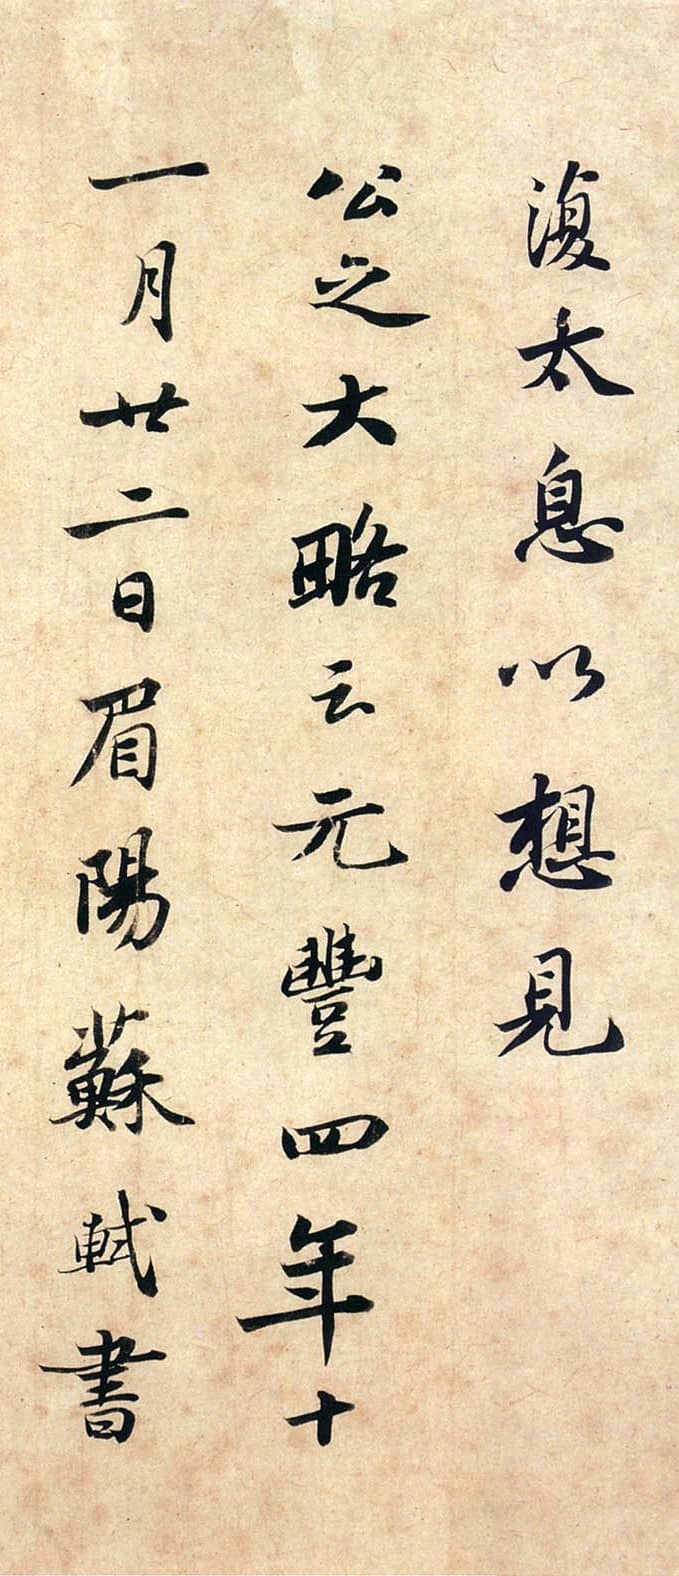 復太息以想見
公之大略云元豐四年十
一月廿二日眉陽蘇軾書